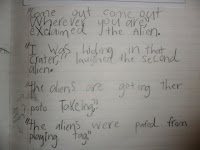 "Come out come out
Wherever you are"
exclaimed the Alien.
"I was hiding in that
Crater," laughed the second
alien.
"The aliens are getting ther
poto Taking"
"the aliens were from
playing tag"